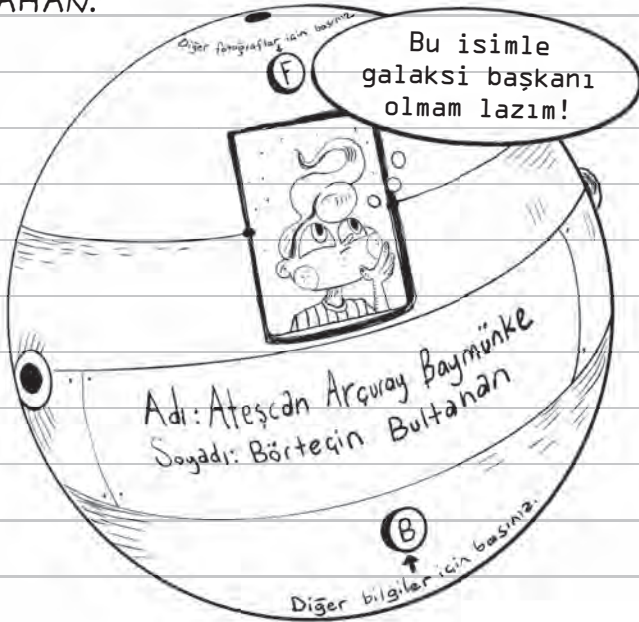 AHAN.
Diğer fotoğraflar için basınız.
F
Bu isimle
galaksi başkanı
olmam lazım!
Adı: Ateşcan Arçuray Baymünke
Soyadı: Börteçin Bultahan
B
Diğer bilgiler için basınız.